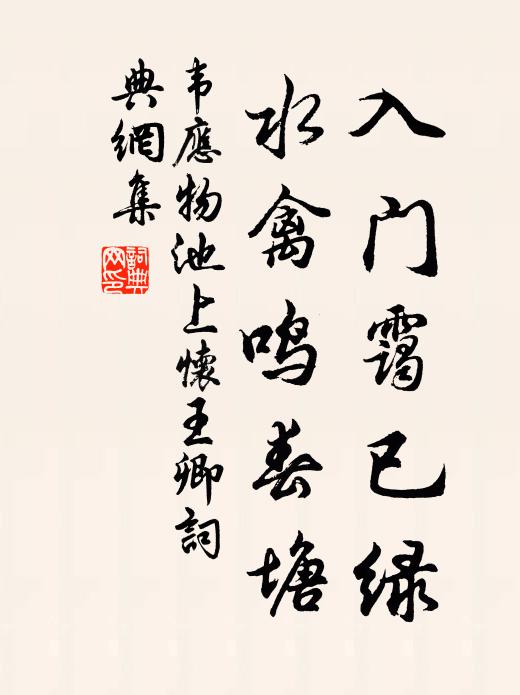 入门霭已绿
水禽鸣春塘
韦應物池上懷王卿詞
典網集
詞典网印